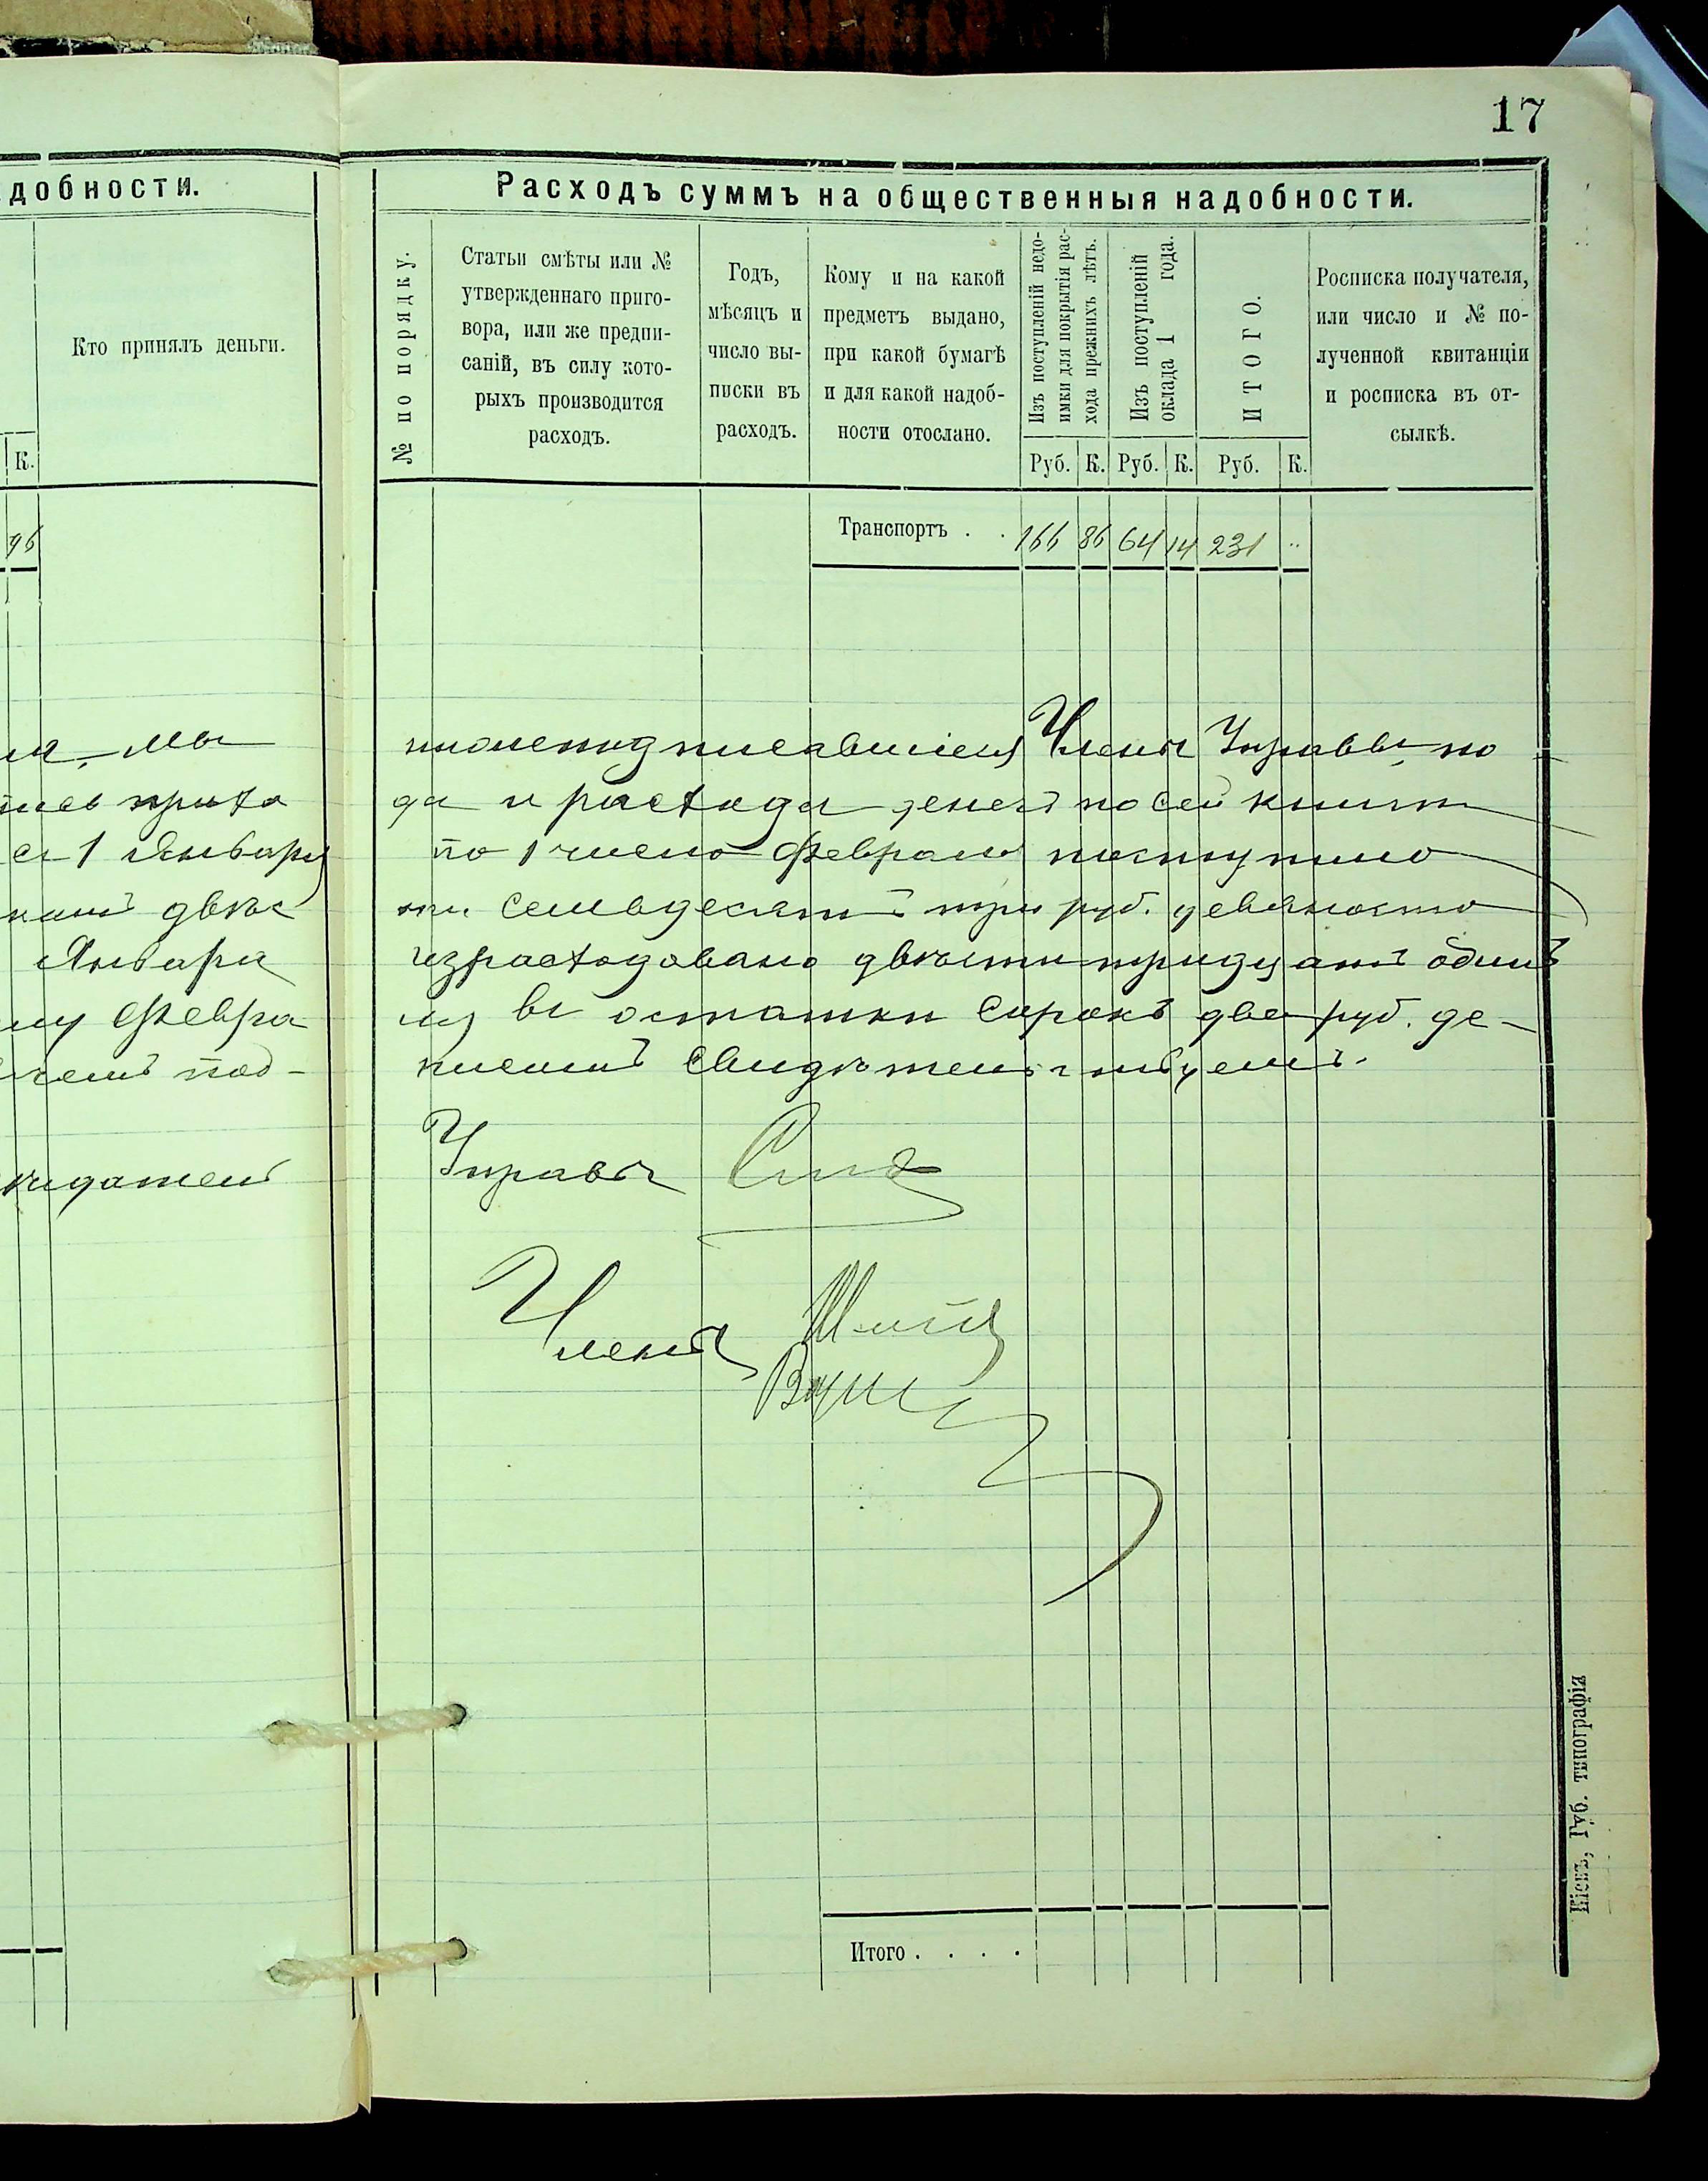 17
добности.
К.
Кто принялъ деньги.
96
мы
прихо
1 Января
двѣс
Января
Февра
под-
Расходъ суммъ на общественныя надобности.
№ по порядку.
Статьи смѣты или №
утвержденнаго приго-
вора, или же предпи-
саній, въ силу кото-
рыхъ производится
расходъ.
Годъ,
мѣсяцъ и
число вы-
писки въ
расходъ.
Кому и на какой
предметъ выдано,
при какой бумагѣ
и для какой надоб-
ности отослано.
Изъ поступленій недо-
имки для покрытія рас-
хода прежнихъ лѣтъ.
Изъ поступленій
оклада 1 года.
ИТОГО.
Росписка получателя,
или число и № по-
лученной квитанціи
и росписка въ от-
сылкѣ.
Руб. К. Руб. К. Руб. К.
Транспортъ . . 166 86 64 14 231 "
нижеподписавшіеся Члены Управы, по
да и расхода денегъ по сей книги
по 1 число Февраля поступило
ти семьдесятъ три руб. девяносто
израсходовано двѣсти тридцать одинъ
ля въ остатки сорокъ два руб. де-
писомъ свидѣтельствуемъ.
Управы
Члены
Итого . . . .
Кіевъ, Губ. типографія